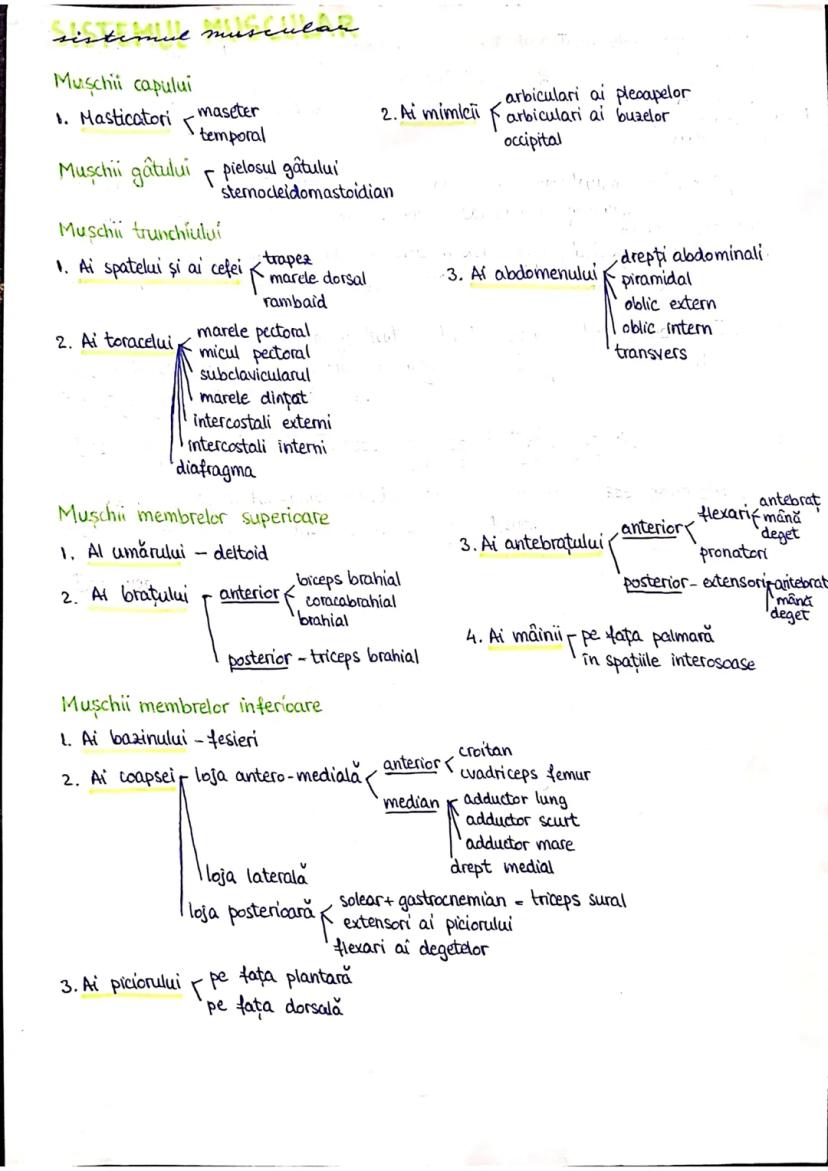 SISTEMUL MUSCULAR
sistemul muscular
Mușchii capului
1. Masticatori
maseter
temporal
2. Ai mimicii
arbiculari ai pleoapelor
arbiculari ai buzelor
occipital
Mușchii gâtului
pielosul gâtului
sternocleidomastoidian
Mușchii trunchiului
1. Ai spatelui și ai cefei
trapez
marele dorsal
rambaid
2. Ai toracelui
marele pectoral
micul pectoral
subclavicularul
marele dințat
intercostali externi
intercostali interni
diafragma
3. Ai abdomenului
drepți abdominali
piramidal
oblic extern
oblic intern
transvers
Mușchii membrelor superioare
1. Al umărului – deltoid
2. Ai brațului
anterior
biceps brahial
coracabrahial
brahial
posterior – triceps brahial
3. Ai antebrațului
anterior
flexari
antebraț
mână
deget
pronatori
posterior – extensori
antebraț
mână
deget
4. Ai mâinii
pe fața palmară
în spațiile interosoase
Mușchii membrelor inferioare
1. Ai bazinului – fesieri
2. Ai coapsei
loja antero-medială
anterior
croitan
cvadriceps femur
median
adductor lung
adductor scurt
adductor mare
drept medial
loja laterală
loja posterioară
solear + gastrocnemian = triceps sural
extensori ai piciorului
flexari ai degetelor
3. Ai piciorului
pe fața plantară
pe fața dorsală